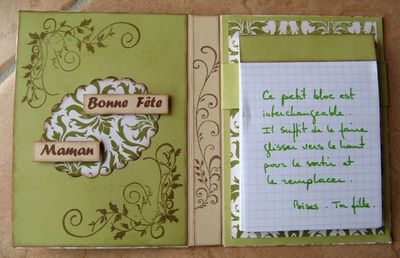 Bonne Fête
Maman
Ce petit bloc est
interchangeable.
Il suffit de le faire
glisser vers le haut
pour le sortir et
le remplacer.
Bises. Ta fille.